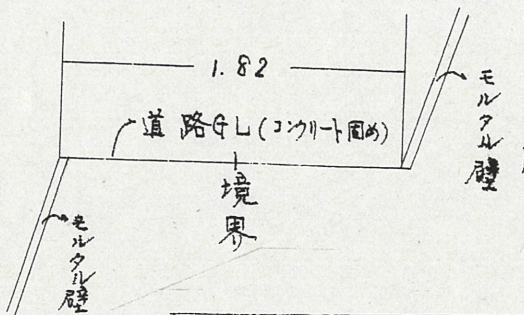 1.82
道路GL(コンクリート固め)
境界
モルタル壁
モルタル壁